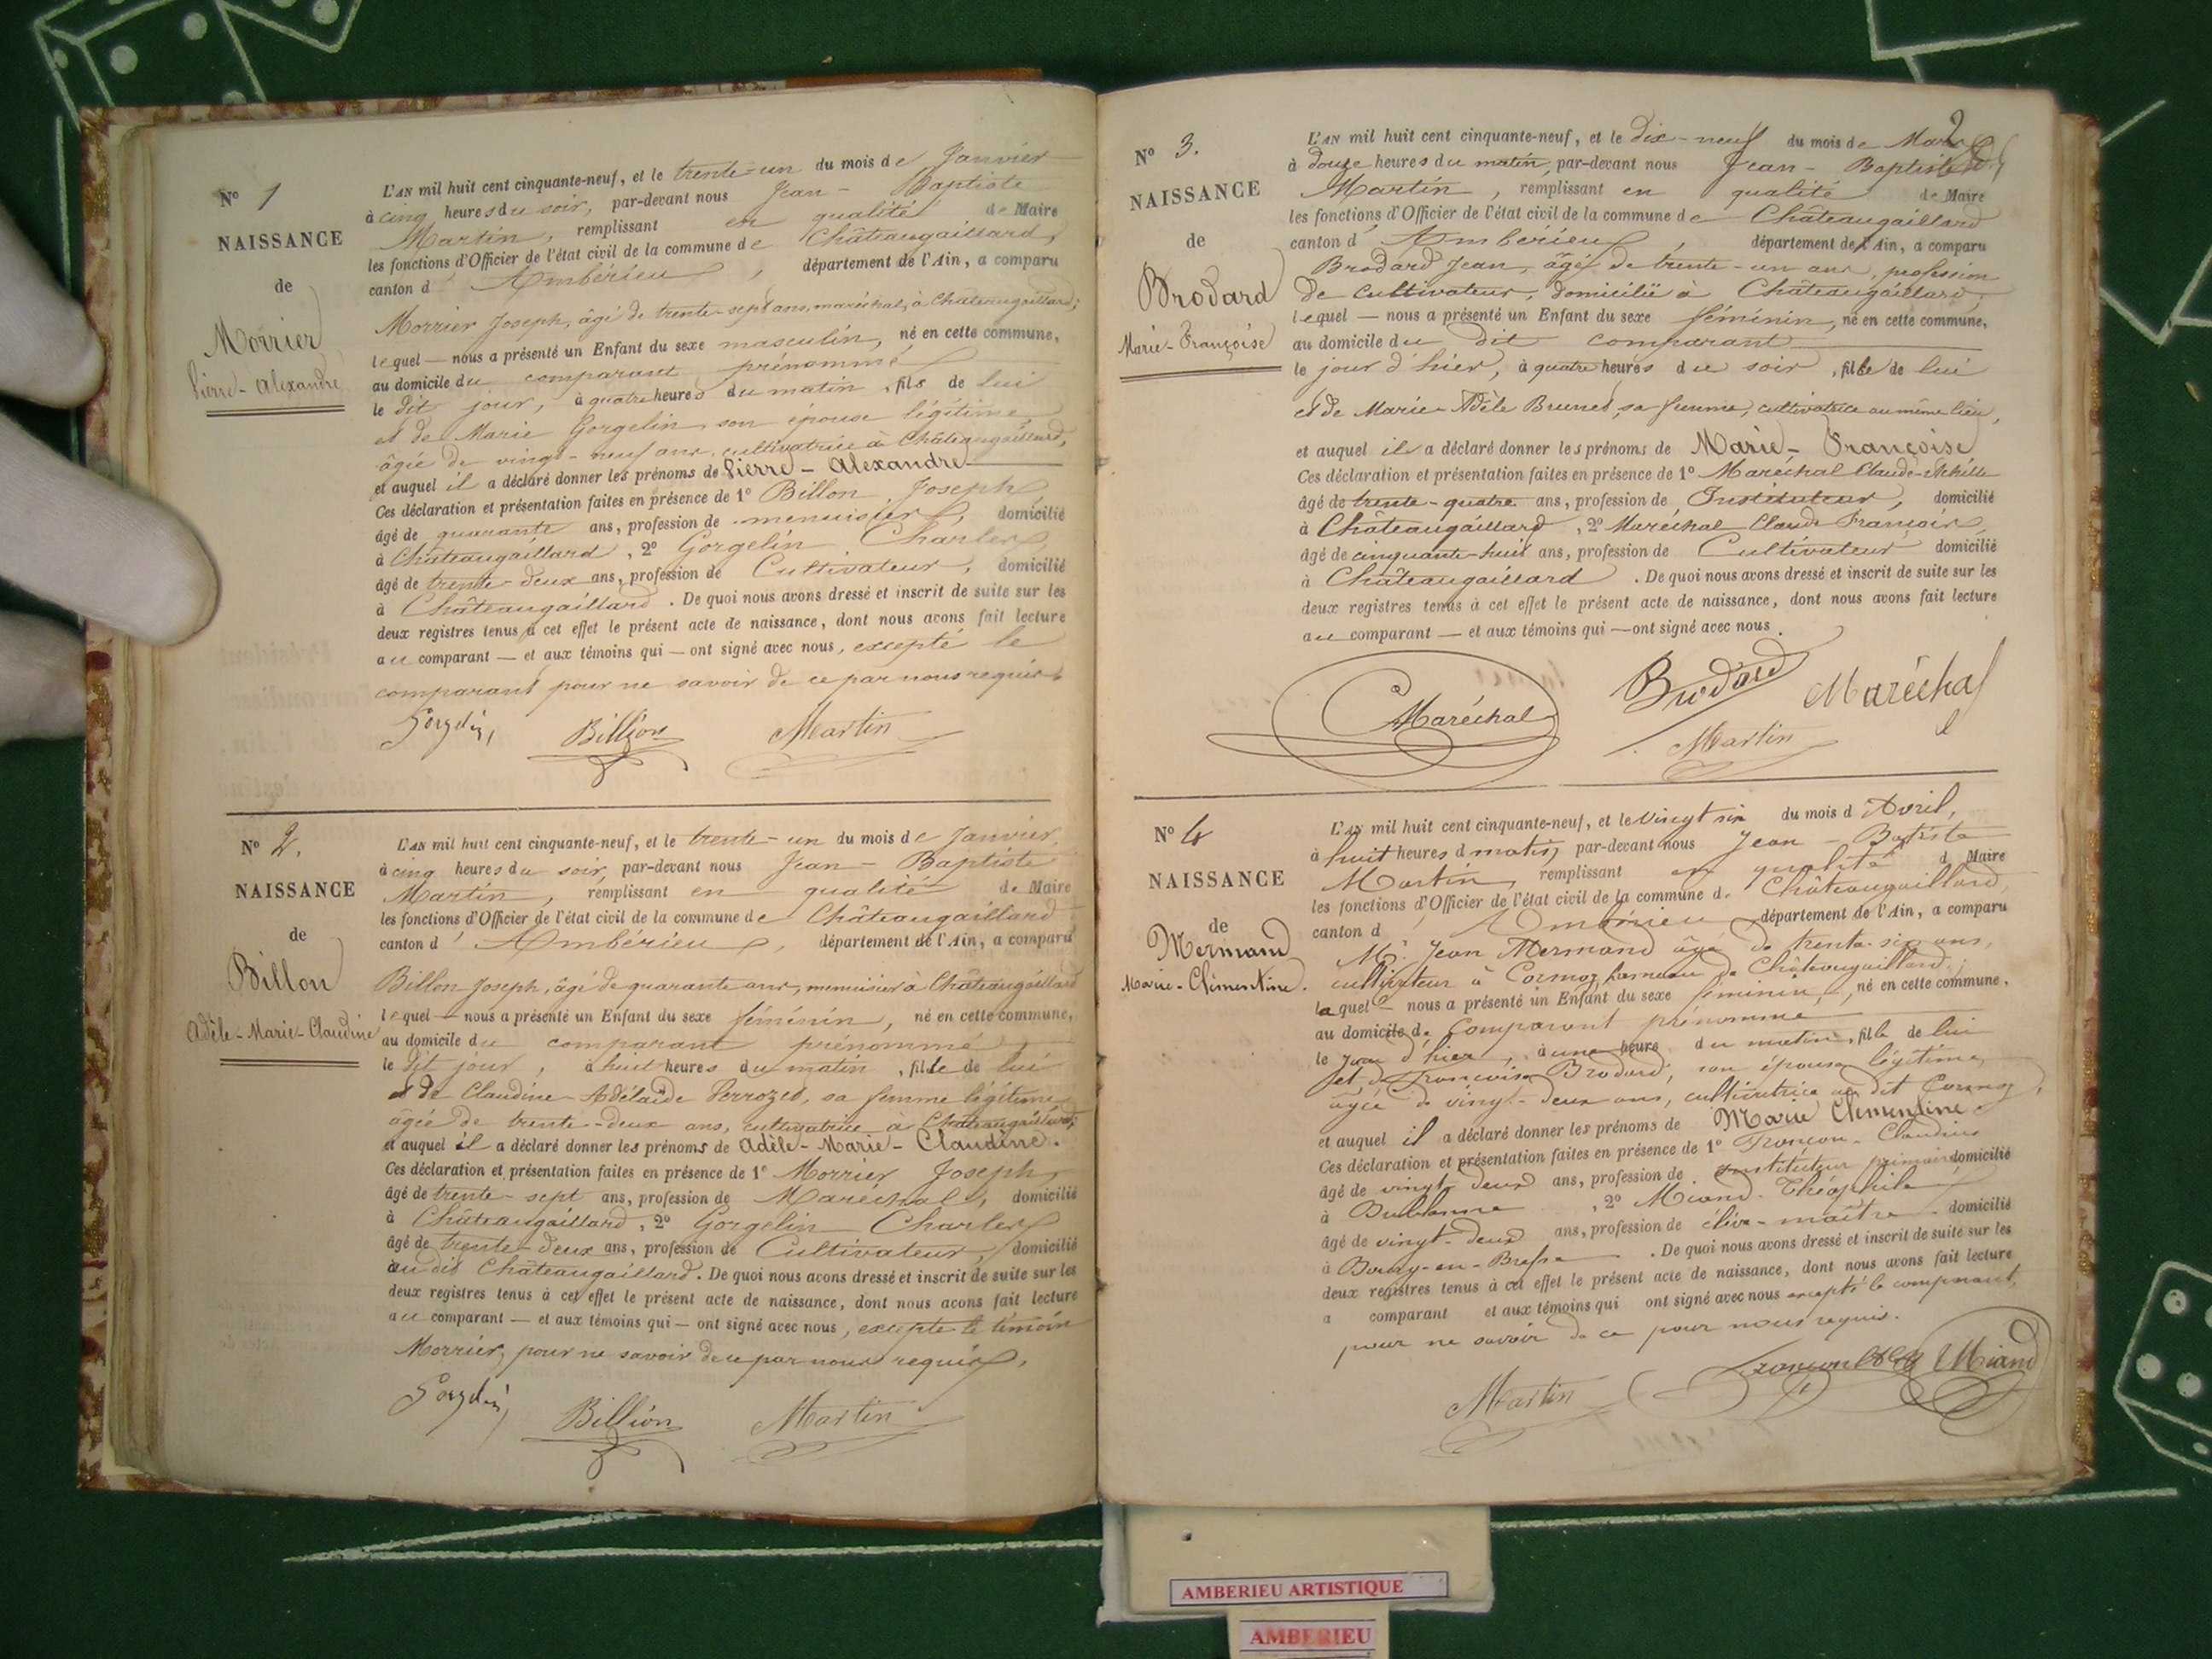 N° 1
NAISSANCE
de
Morrier
Pierre-Alexandre
L'AN mil huit cent cinquante-neuf, et le trente-un du mois de Janvier
à cinq heures du soir, par-devant nous Jean-Baptiste
Martin, remplissant en qualité de Maire
les fonctions d'Officier de l'état civil de la commune de Châteaugaillard,
canton d'Ambérieu, département de l'Ain, a comparu
Morrier Joseph, âgé de trente-sept ans, maréchal, à Châteaugaillard;
lequel — nous a présenté un Enfant du sexe masculin, né en cette commune,
au domicile du comparant prénommé
le dit jour, à quatre heures du matin, fils de lui
et de Marie Gorgelin, son épouse légitime,
âgée de vingt-neuf ans, cultivatrice à Châteaugaillard,
et auquel il a déclaré donner les prénoms de Pierre-Alexandre
Ces déclaration et présentation faites en présence de 1° Billon, Joseph
âgé de quarante ans, profession de menuisier, domicilié
à Châteaugaillard, 2° Gorgelin Charles
âgé de trente-deux ans, profession de Cultivateur, domicilié
à Châteaugaillard. De quoi nous avons dressé et inscrit de suite sur les
deux registres tenus à cet effet le présent acte de naissance, dont nous avons fait lecture
au comparant — et aux témoins qui — ont signé avec nous, excepté le
comparant pour ne savoir de ce par nous requis.
Gorgelin, Billion Martin
N° 2.
NAISSANCE
de
Billon
Adèle-Marie-Claudine
L'AN mil huit cent cinquante-neuf, et le trente-un du mois de Janvier,
à cinq heures du soir, par-devant nous Jean-Baptiste
Martin, remplissant en qualité de Maire
les fonctions d'Officier de l'état civil de la commune de Châteaugaillard
canton d'Ambérieu, département de l'Ain, a comparu
Billon Joseph, âgé de quarante ans, menuisier à Châteaugaillard
lequel — nous a présenté un Enfant du sexe féminin, né en cette commune,
au domicile du comparant prénommé,
le dit jour, à huit heures du matin, fille de lui
et de Claudine-Adélaïde Perrozet, sa femme légitime
âgée de trente-deux ans, cultivatrice à Châteaugaillard;
et auquel il a déclaré donner les prénoms de Adèle-Marie-Claudine.
Ces déclaration et présentation faites en présence de 1° Morrier Joseph,
âgé de trente-sept ans, profession de Maréchal, domicilié
à Châteaugaillard, 2° Gorgelin Charles
âgé de trente-deux ans, profession de Cultivateur, domicilié
au dit Châteaugaillard. De quoi nous avons dressé et inscrit de suite sur les
deux registres tenus à cet effet le présent acte de naissance, dont nous avons fait lecture
au comparant — et aux témoins qui — ont signé avec nous, excepté le témoin
Morrier, pour ne savoir de ce par nous requis.
Gorgelin, Billion Martin
2
N° 3.
NAISSANCE
de
Brodard
Marie-Françoise
L'AN mil huit cent cinquante-neuf, et le dix-neuf du mois de Mars
à douze heures du matin, par-devant nous Jean-Baptiste
Martin, remplissant en qualité de Maire
les fonctions d'Officier de l'état civil de la commune de Châteaugaillard
canton d'Ambérieu, département de l'Ain, a comparu
Brodard Jean, âgé de trente-un ans, profession
de Cultivateur, domicilié à Châteaugaillard,
lequel — nous a présenté un Enfant du sexe féminin, né en cette commune,
au domicile du dit comparant
le jour d'hier, à quatre heures du soir, fille de lui
et de Marie-Adèle Brunet, sa femme, cultivatrice au même lieu,
et auquel il a déclaré donner les prénoms de Marie-Françoise
Ces déclaration et présentation faites en présence de 1° Maréchal Claude-Achille
âgé de trente-quatre ans, profession de Instituteur, domicilié
à Châteaugaillard, 2° Maréchal Claude François
âgé de cinquante-huit ans, profession de Cultivateur domicilié
à Châteaugaillard. De quoi nous avons dressé et inscrit de suite sur les
deux registres tenus à cet effet le présent acte de naissance, dont nous avons fait lecture
au comparant — et aux témoins qui — ont signé avec nous.
C Maréchal Brodard Maréchal
Martin
N° 4
NAISSANCE
de
Mermand
Marie-Clémentine.
L'AN mil huit cent cinquante-neuf, et le vingt six du mois d'Avril,
à huit heures d matin par-devant nous Jean-Batiste
Martin, remplissant en qualité d Maire
les fonctions d'Officier de l'état civil de la commune d. Châteaugaillard,
canton d'Ambérieu, département de l'Ain, a comparu
Mr. Jean Mermand âgé de trente-six ans,
cultivateur à Cormoz, hameau de Châteaugaillard;
laquel — nous a présenté un Enfant du sexe féminin, né en cette commune,
au domicile d. comparant prénommé
le jour d'hier, à une heure du matin, fille de lui
et de Françoise Brodard, son épouse légitime,
âgée de vingt-deux ans, cultivatrice au dit Cormoz,
et auquel il a déclaré donner les prénoms de Marie Clémentine.
Ces déclaration et présentation faites en présence de 1° Tronçon-Claudius
âgé de vingt deux ans, profession de instituteur primaire domicilié
à, 2° Miand. Théophile
âgé de vingt-deux ans, profession de élève-maître domicilié
à Bourg-en-Bresse. De quoi nous avons dressé et inscrit de suite sur les
deux registres tenus à cet effet le présent acte de naissance, dont nous avons fait lecture
a comparant et aux témoins qui ont signé avec nous excepté le comparant,
pour ne savoir de ce par nous requis.
Martin Miand
AMBERIEU ARTISTIQUE
AMBERIEU